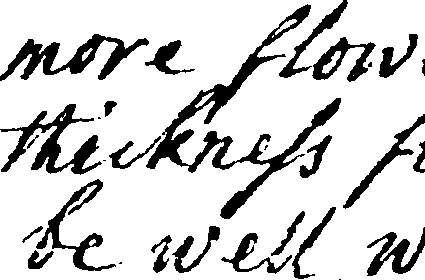 more flow
thickneſs f
be well w